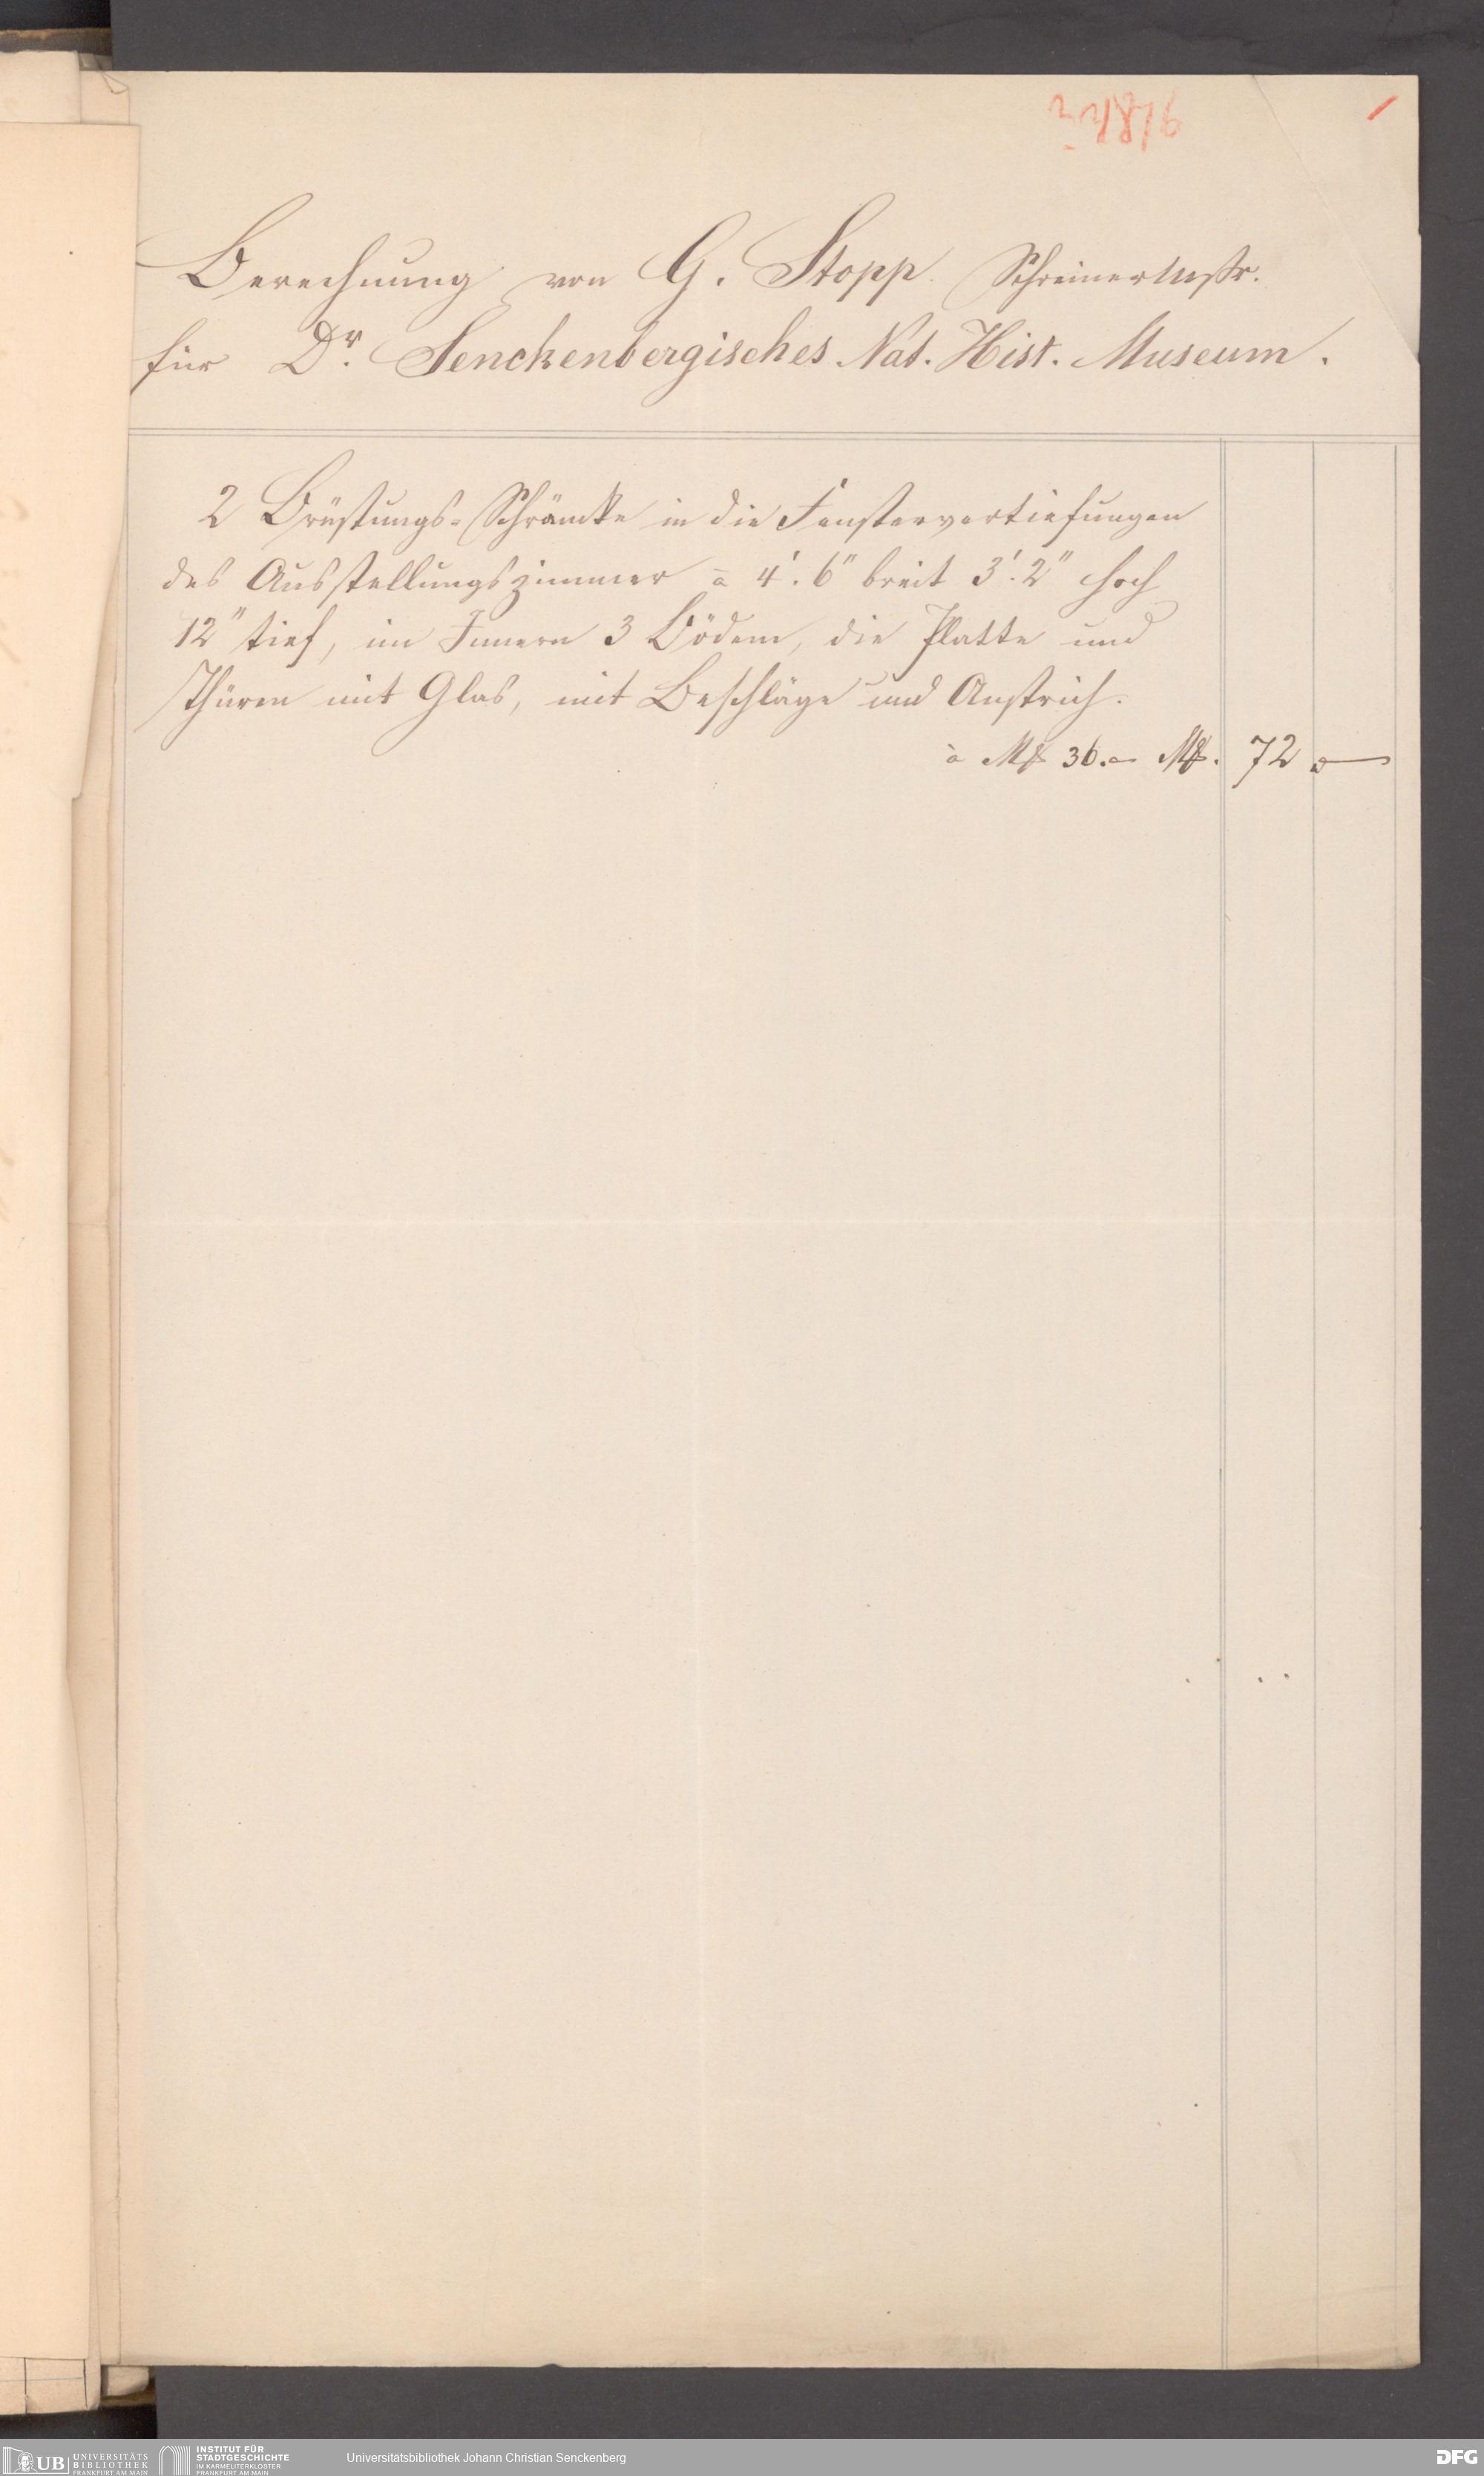 Berechnung von G. Stopp. Schreinermstr.
für Dr. Senckenbergisches Nat. Hist. Museum.
2 Brüstungs-Schränke in die Fenstervertiefungen
des Ausstellungszimmer à 4'. 6" breit 3'. 2" hoch
12" tief, im Innern 3 Böden, die Platte und
Thüren mit Glas, mit Beschläge und Anstrich.
à Mk 36.- Mk. 72 -
UB UNIVERSITÄTS
BIBLIOTHEK
FRANKFURT AM MAIN
INSTITUT FÜR
STADTGESCHICHTE
IM KARMELITERKLOSTER
FRANKFURT AM MAIN
Universitätsbibliothek Johann Christian Senckenberg
DFG